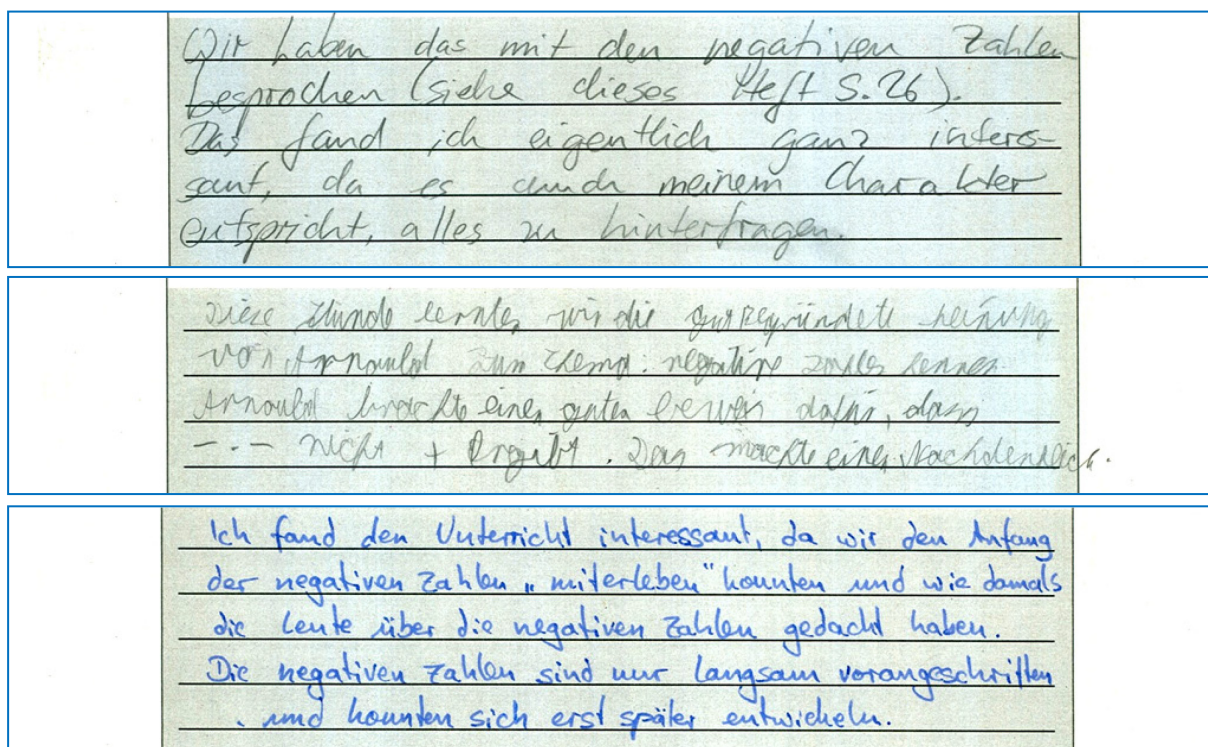 Wir haben das mit den negativen Zahlen
besprochen (siehe dieses Heft S. 26).
Das fand ich eigentlich ganz interes-
sant, da es auch meinem Charakter
entspricht, alles zu hinterfragen.
Diese Stunde lernten wir die gut Begründete Meinung
von Arnauld zum Thema: negative Zahlen kennen
Arnauld brachte einen guten beweis dafür, dass
- · - nicht + Ergibt. Das machte einen Nachdenklich.
Ich fand den Unterricht interessant, da wir den Anfang
der negativen Zahlen „miterleben" konnten und wie damals
die Leute über die negativen Zahlen gedacht haben.
Die negativen Zahlen sind nur langsam vorangeschritten
. und konnten sich erst später entwickeln.